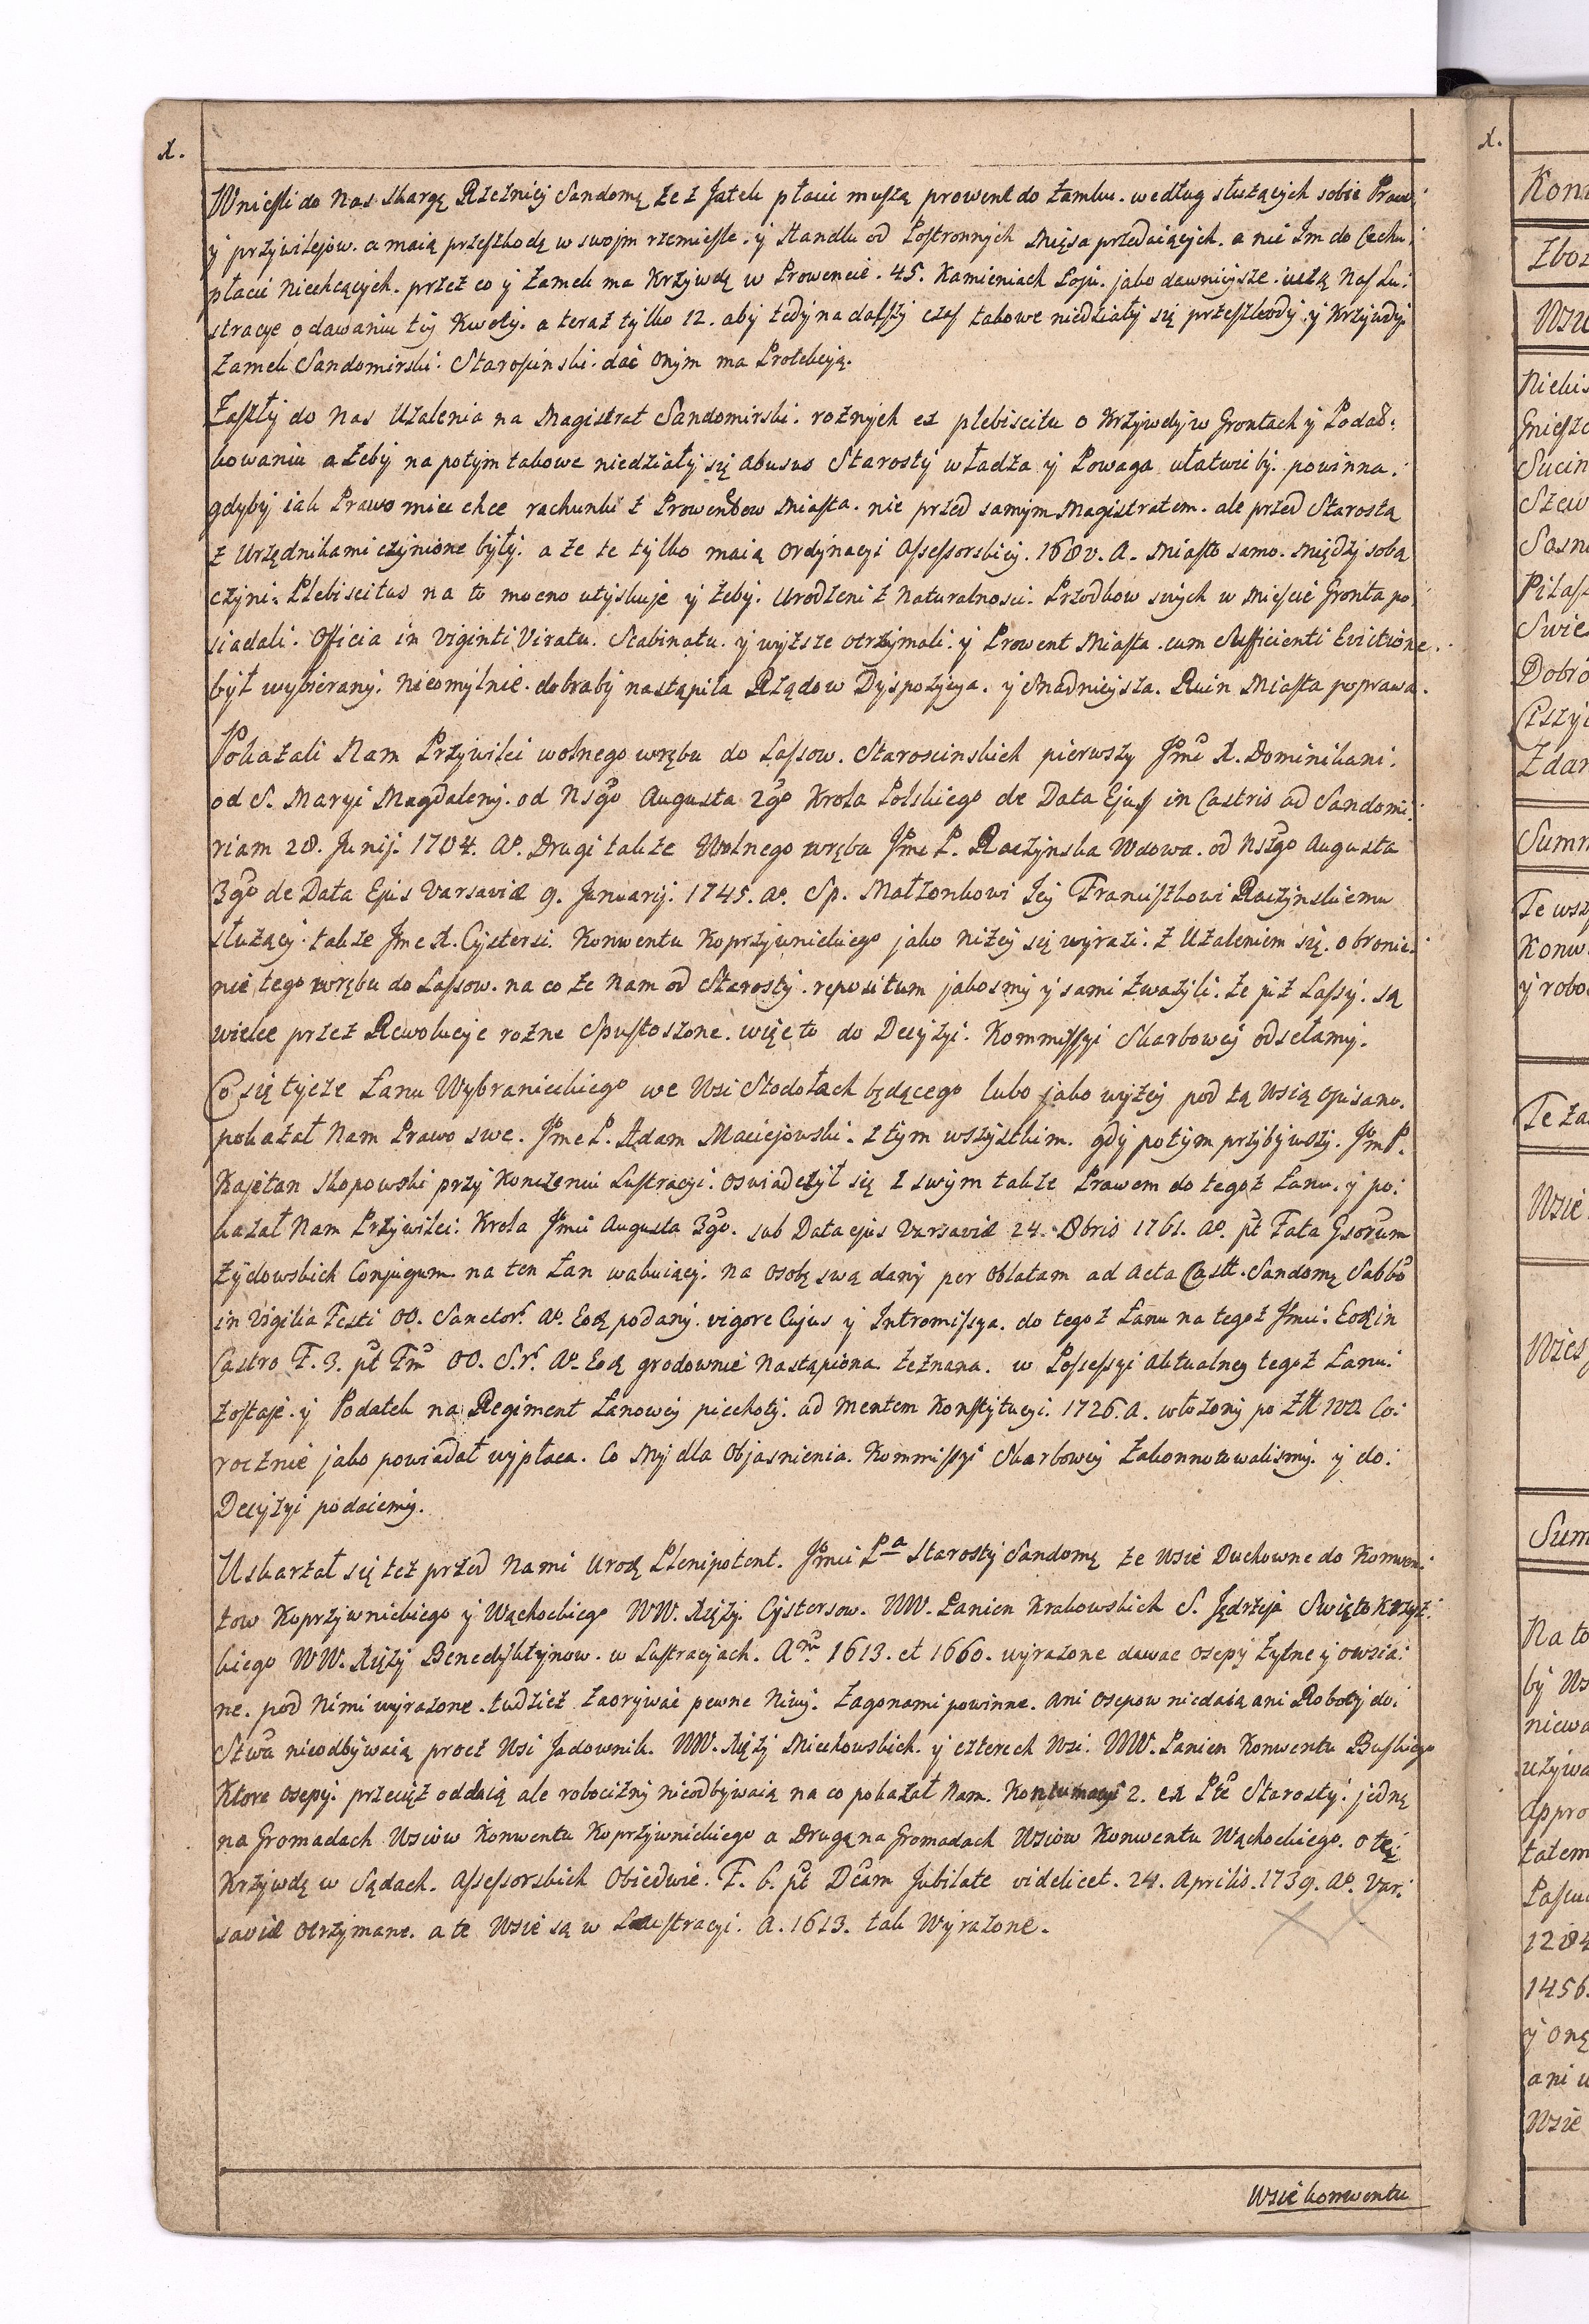 X.
Wnieśli do Nas skargę Rzeźnicy Sandomę że z Jatek płacić muszą prowent do Zamku. według służących sobie Praw.
y przywilejow. a maią przeszkodę w swojm rzemieśle. y Handlu od Postronnych Mięsa przedaiących. a nic Im do Cechu
płacić Niechcących. przez co y Zamek ma Krzywdę w Prowencie. 45. Kamieniach Łoju. jako dawnieysze. uczą Nas Lu:
stracye o dawaniu tey Kwoty. a teraz tylko 12. aby tedy na dalszy czas takowe niedziały się przeszkody y Krzywdy
Zamek Sandomirski. Starosciński. dać onym ma Protekcyą.
Zaszły do Nas Użalenia na Magistrat Sandomirski. rożnych ex plebiscitu o Krzywdy w Grontach y Podat:
kowaniu a żeby na potym takowe niedziały się abusus Starosty władza y Powaga ułatwić by. powinna.
gdyby iak Prawo miec chce rachunki z Prowentow Miasta. nie przed samym Magistratem. ale przed Starostą
z Urzędnikami czynione były. a że te tylko maią Ordynacyi Assessorskiey. 1680. A. Miasto samo. między sobą
czyni. Plebiscitus na to mocno utyskuje y żeby. Urodzeni z Naturalnosci. Przodkow swych w Mieście Gronta po:
siadali. Officia in Viginti Viratu. Scabinatu. y wyższe otrzymali. y Prowent Miasta. cum Sufficienti Evictione.
był wybierany. Nieomylnie. dobraby nastąpiła Rządow Dyspozycya. y snadnieysza. Ruin Miasta poprawa.
Pokazali Nam Przywilei wolnego wrębu do Lassow. Staroscinskich pierwszy Jmć X. Dominikani.
od S. Maryi Magdaleny. od Nsgo Augusta 2go Krola Polskiego de Data Ejus in Castris ad Sandomi:
riam 28. Junij. 1704. Ao. Drugi także Wolnego wrębu Jmc P. Raczynska Wdowa. od Nsgo Augusta
3go de Data Ejus Varsaviæ 9. Januarij. 1745. Ao. Sp. Małzonkowi Jey Franciszkowi Raczynskiemu
służący. także Jmc X. Cystersi. Konwentu Koprzywnickiego jako niżey się wyrazi. z Użaleniem się. o bronie:
nie tego wrębu do Lassow. na co że Nam od Starosty. repositum jakosmy y sami zważyli. że już Lassy. są
wielce przez Rewolucye rożne Spustoszone. więc to do Decyzyi. Kommissyi Skarbowey odsełamy.
Co się tycze Łanu Wybranieckiego we Wsi Stodołach będącego lubo jako wyżey pod tą Wsią opisano.
pokazał Nam Prawo swe. Jmc P. Adam Maciejowski. z tym wszystkim. gdy potym przybywszy. Jm P.
Kajetan Skopowski przy Konczeniu Lustracyi. oswiadczył się z swym także Prawem do tegoż Łanu. y po:
kazał Nam Przywilei. Krola Jmci Augusta 3go. sub Data ejus Varsaviæ 24. 8bris 1761. Ao. pt Fata Gsorum
Żydowskich Conjugum na ten Łan wakuiący. na osobę swą dany per oblatam ad Acta Castr. Sandomę Sabbo
in Vigilia Festi OO. Sanctor. Ao. Eoḍ podany. vigore Cujus y Intromissya. do tegoż Łanu na tegoż Jmci. Eoḍ in
Castro F. 3. pt Fm OO. S.r. Ao. Eoḍ grodownie Nastąpiona. zeznana. w Possessyi Aktualney tegoż Łanu.
zostaje. y Podatek na Regiment Łanowey piechoty. ad mentem Konstytucyi. 1726. A. włożony po Złł 100. Co:
rocznie jako powiadał wypłaca. Co My dla Objasnienia. Kommissyi Skarbowey Zakonnotowalismy. y do.
Decyzyi podaiemy.
Uskarżał się też przed Nami Uroḍ Plenipotent. Jmci Pa Starosty Sandomę że Wsie Duchowne do Konwen:
tow Koprzywnickiego y Wąchockiego WW. Xięży Cystersow. WW. Panien Krakowskich S. Jędrzeja Swięto Krzyz:
kiego WW. Xięży Benedyktynow. w Lustracyach. A. 1613. et 1660. wyrażone dawac osepy żytne y owsia:
ne. pod Nimi wyrażone. tudzież zaorywać pewne Niwy. zagonami powinne. ani osepow niedaią ani Roboty do.
Stwa nieodbywaią procz Wsi Jadownik. WW. Xięży Miechowskich. y czterech Wsi. WW. Panien Konwentu Buskiego
Ktore osepy. przecięż oddaią ale robocizny nieodbywaią na co pokazał Nam. Kontumacye 2. ex Pte Starosty. jednę
na Gromadach Wsiow Konwentu Koprzywnickiego a Drugą na Gromadach Wsiow Konwentu Wąchockiego. o tę
Krzywdę w Sądach. Assessorskich Obiedwie. F. 6. pt Dcam Jubilate videlicet. 24. Aprilis. 1739. Ao. Var:
saviæ otrzymane. a te Wsie są w Lustracyi. A. 1613. tak Wyrażone.
Wsie konwentu
X.
Zboz
Sum
Te wszy
Konw
y robo
Te za
Wsie
Sum
Na to
by Ws
niewa
używa
appro
1284
1456.
y onę
ani w
Wsie